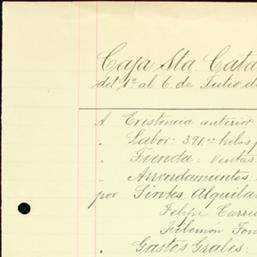 Caja Sta Cata
del 1º al 6 de Julio de
A Existencia anterior
" Labor: 391.00 kelos
" Tienda: Ventas
" Arrendamientos
por Sintes Alquila
Felipe Carre
Filemón Fon
" Gastos Grales: